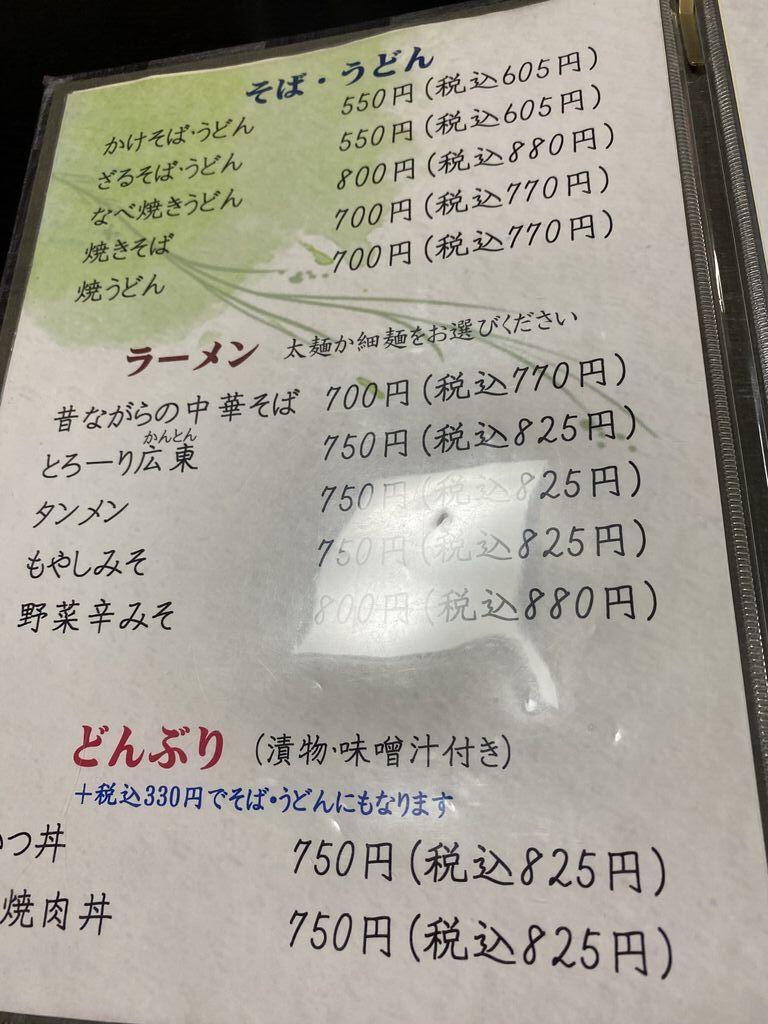 そば・うどん
かけそば・うどん 550円(税込605円)
ざるそば・うどん 550円(税込605円)
なべ焼きうどん 800円(税込880円)
焼きそば 700円(税込770円)
焼うどん 700円(税込770円)
ラーメン 太麺か細麺をお選びください
昔ながらの中華そば 700円(税込770円)
かんとん
とろーり広東 750円(税込825円)
タンメン 750円(税込825円)
もやしみそ 750円(税込825円)
野菜辛みそ 800円(税込880円)
どんぶり (漬物・味噌汁付き)
+税込330円でそば・うどんにもなります
つ丼 750円(税込825円)
焼肉丼 750円(税込825円)